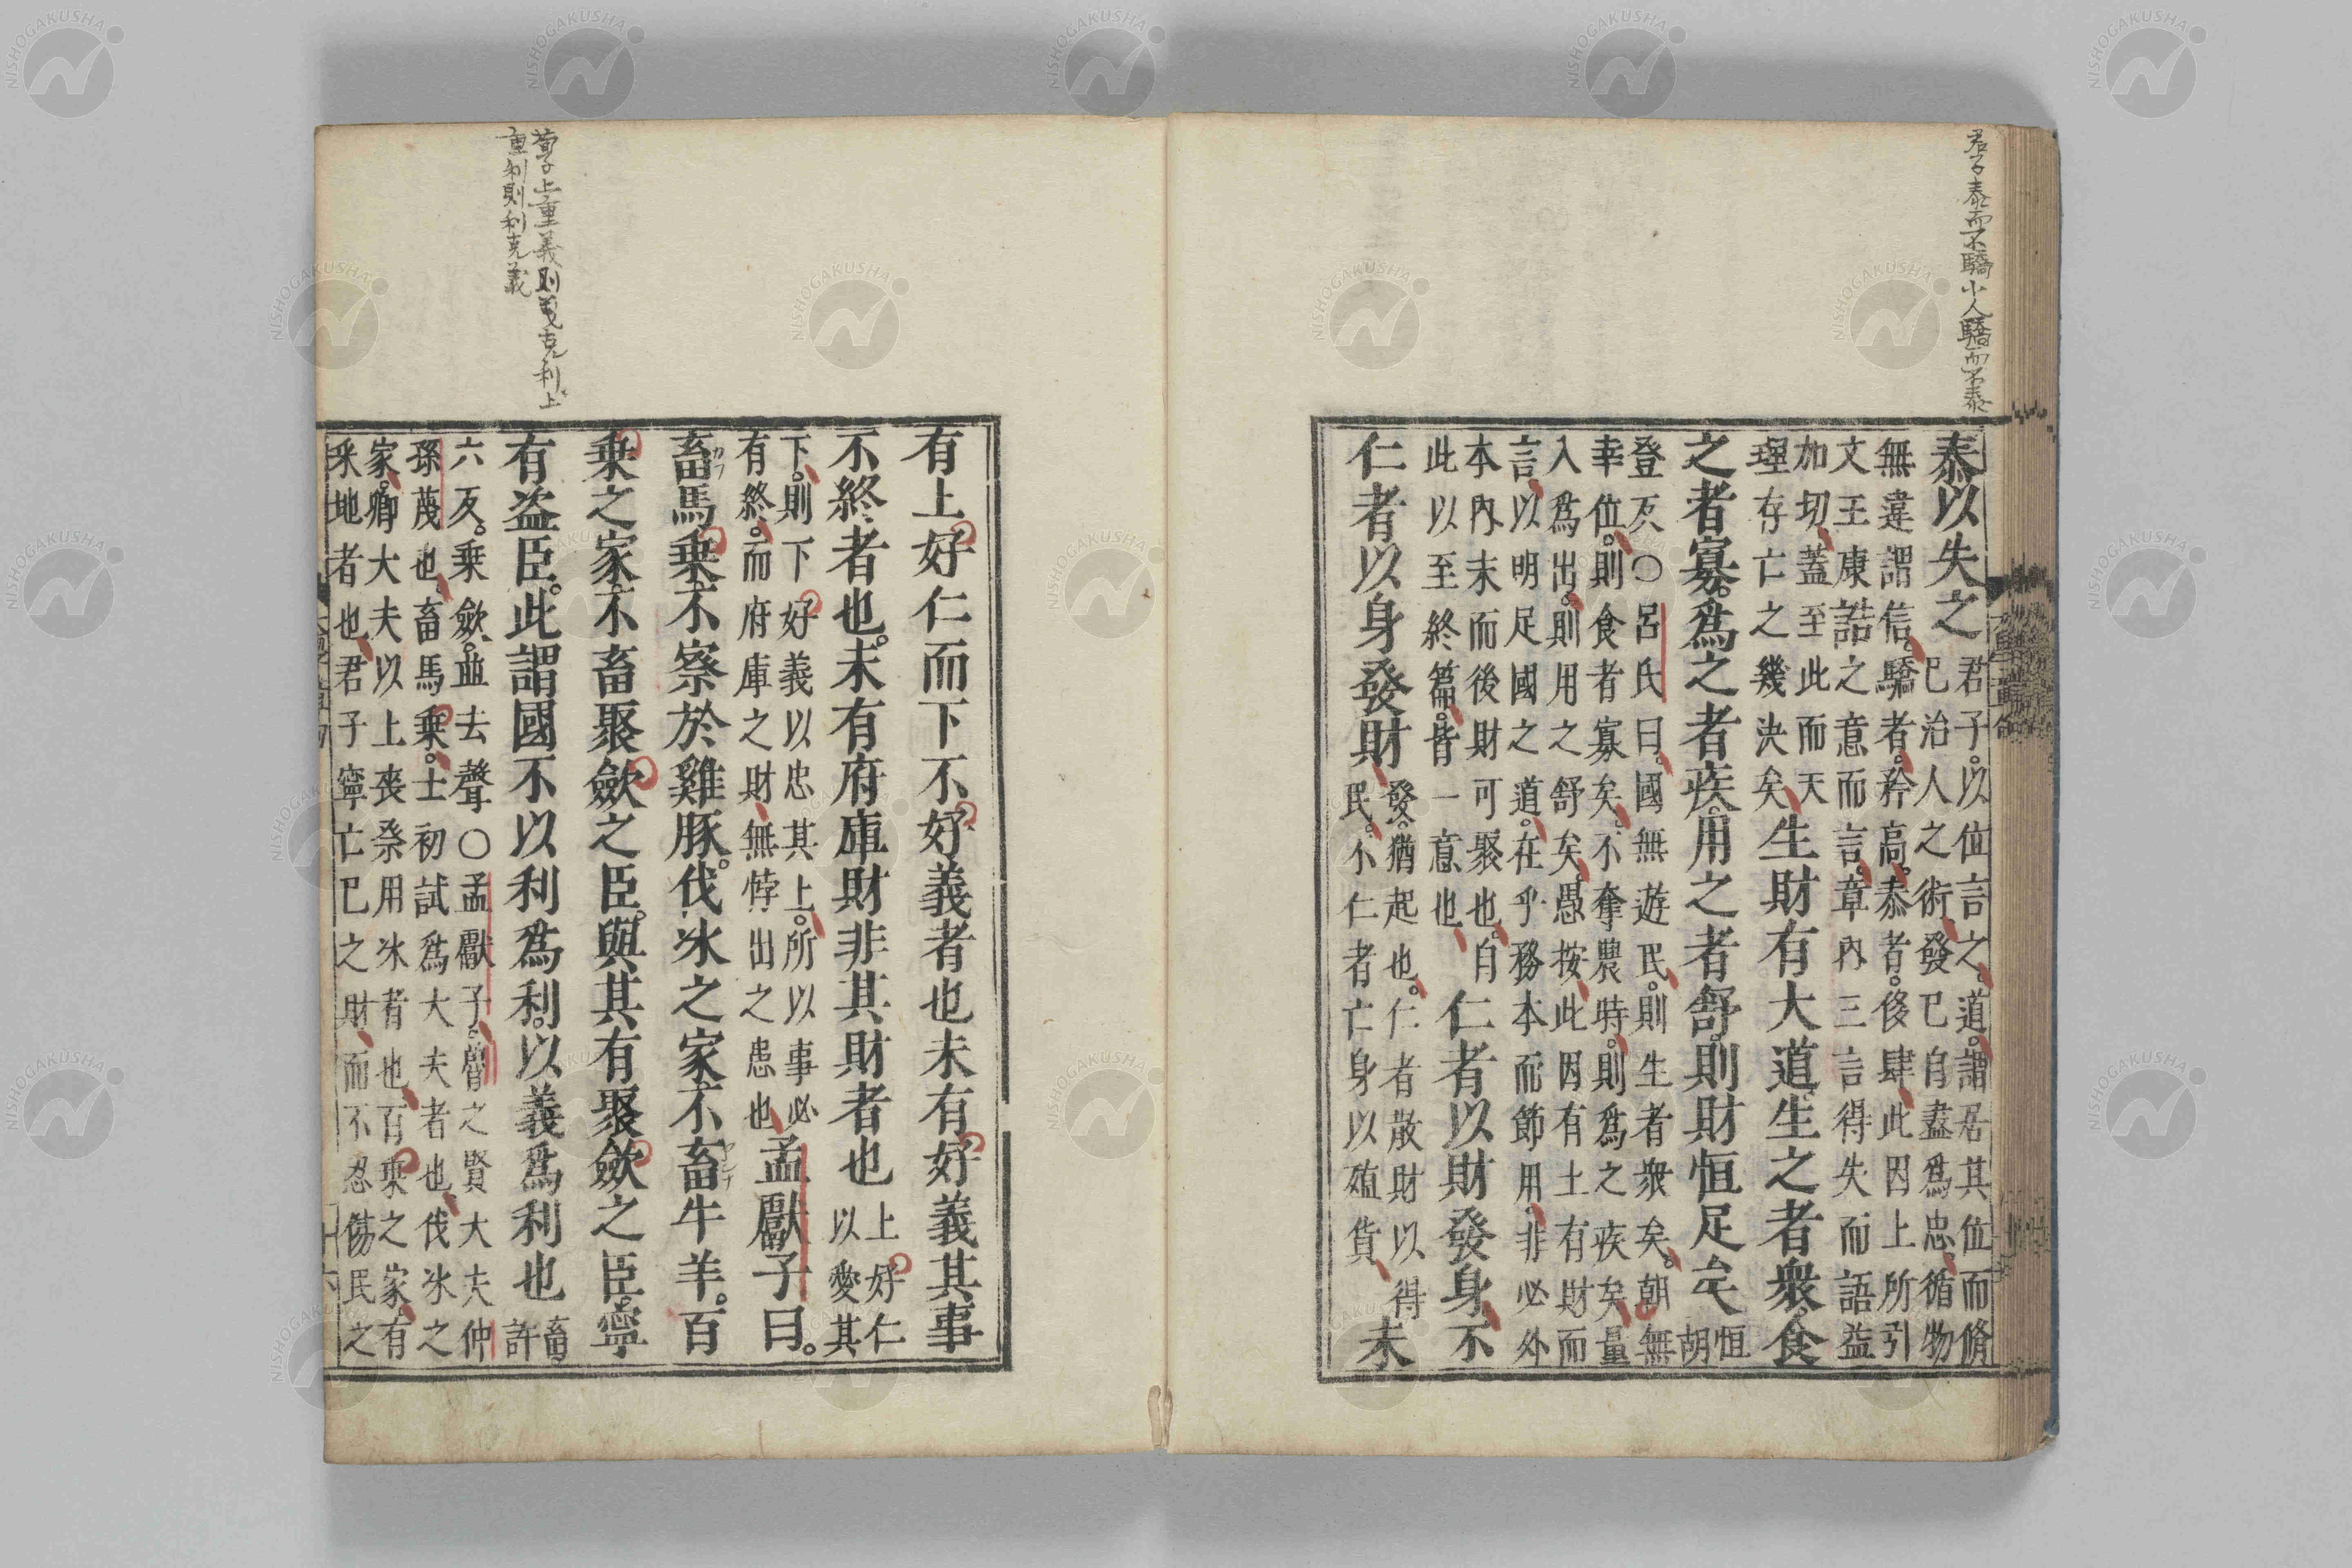 君子泰而不驕小人驕而不泰
泰以失之君子。以位言之。道。謂居其位而脩
己治人之術。發己自盡爲忠。循物
無違謂信。驕者。矜高。泰者。侈肆。此因上所引
文王康誥之意而言。章內三言得失而語益
加切。蓋至此而天
理存亡之幾決矣生財有大道。生之者衆。食
之者寡。爲之者疾。用之者舒。則財恒足矣恒
胡
登反○呂氏曰。國無遊民。則生者衆矣。朝無
幸位。則食者寡矣。不奪農時。則爲之疾矣。量
入爲出。則用之舒矣。愚按此因有土有財而
言。以明足國之道。在乎務本而節用。非必外
本內末而後財可聚也。自
此以至終篇。皆一意也
仁者以財發身。不
仁者以身發財發。猶起也。仁者散財以得
民。不仁者亡身以殖貨
未
有上好仁而下不好義者也未有好義其事
不終者也。未有府庫財非其財者也上好仁
以愛其
下。則下好義以忠其上。所以事必
有終。而府庫之財無悖出之患也
孟獻子曰。
畜馬乗不察於雞豚。伐冰之家不畜牛羊。百
乗之家不畜聚歛之臣。與其有聚歛之臣。寧
有盗臣。此謂國不以利爲利。以義爲利也畜
許
六反。乗歛。並去聲○孟獻子。魯之賢大夫仲
孫蔑也。畜馬乗。士初試爲大夫者也。伐冰之
家。卿大夫以上喪祭用冰者也百乗之家。有
采地者也。君子寧亡己之財而不忍傷民之
荀子上重義則義克利上
重利則利克義